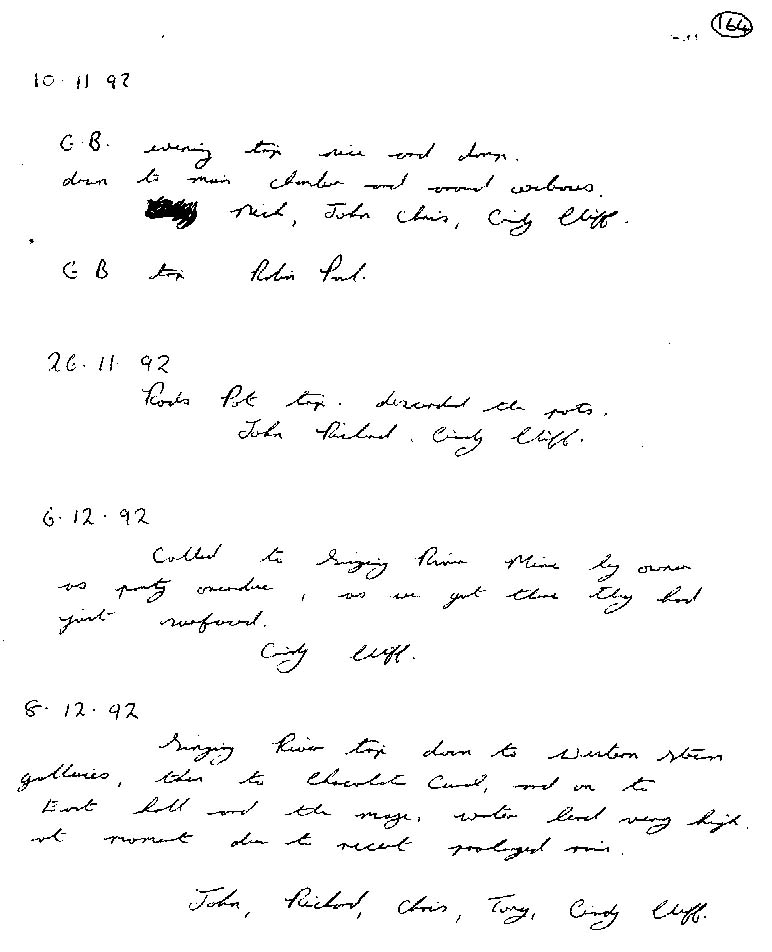 164
10.11.92
G.B. evening trip nice and damp.
down to main chamber and around
Nich, John Chris, Cindy Cliff.
G B trip Robin Paul.
26.11.92
Rods Pot trip. descended the pots.
John Richard. Cindy Cliff.
6.12.92
Called to Singing River Mine by owner
as party overdue, as we got there they had
just surfaced.
Cindy Cliff.
8.12.92
Singing River trip down to Western Stern
galleries, then to Chocolate Canal, and on to
East hall and the maze, water level very high.
at moment due to recent prolonged rain.
John, Richard, Chris, Tony, Cindy Cliff.